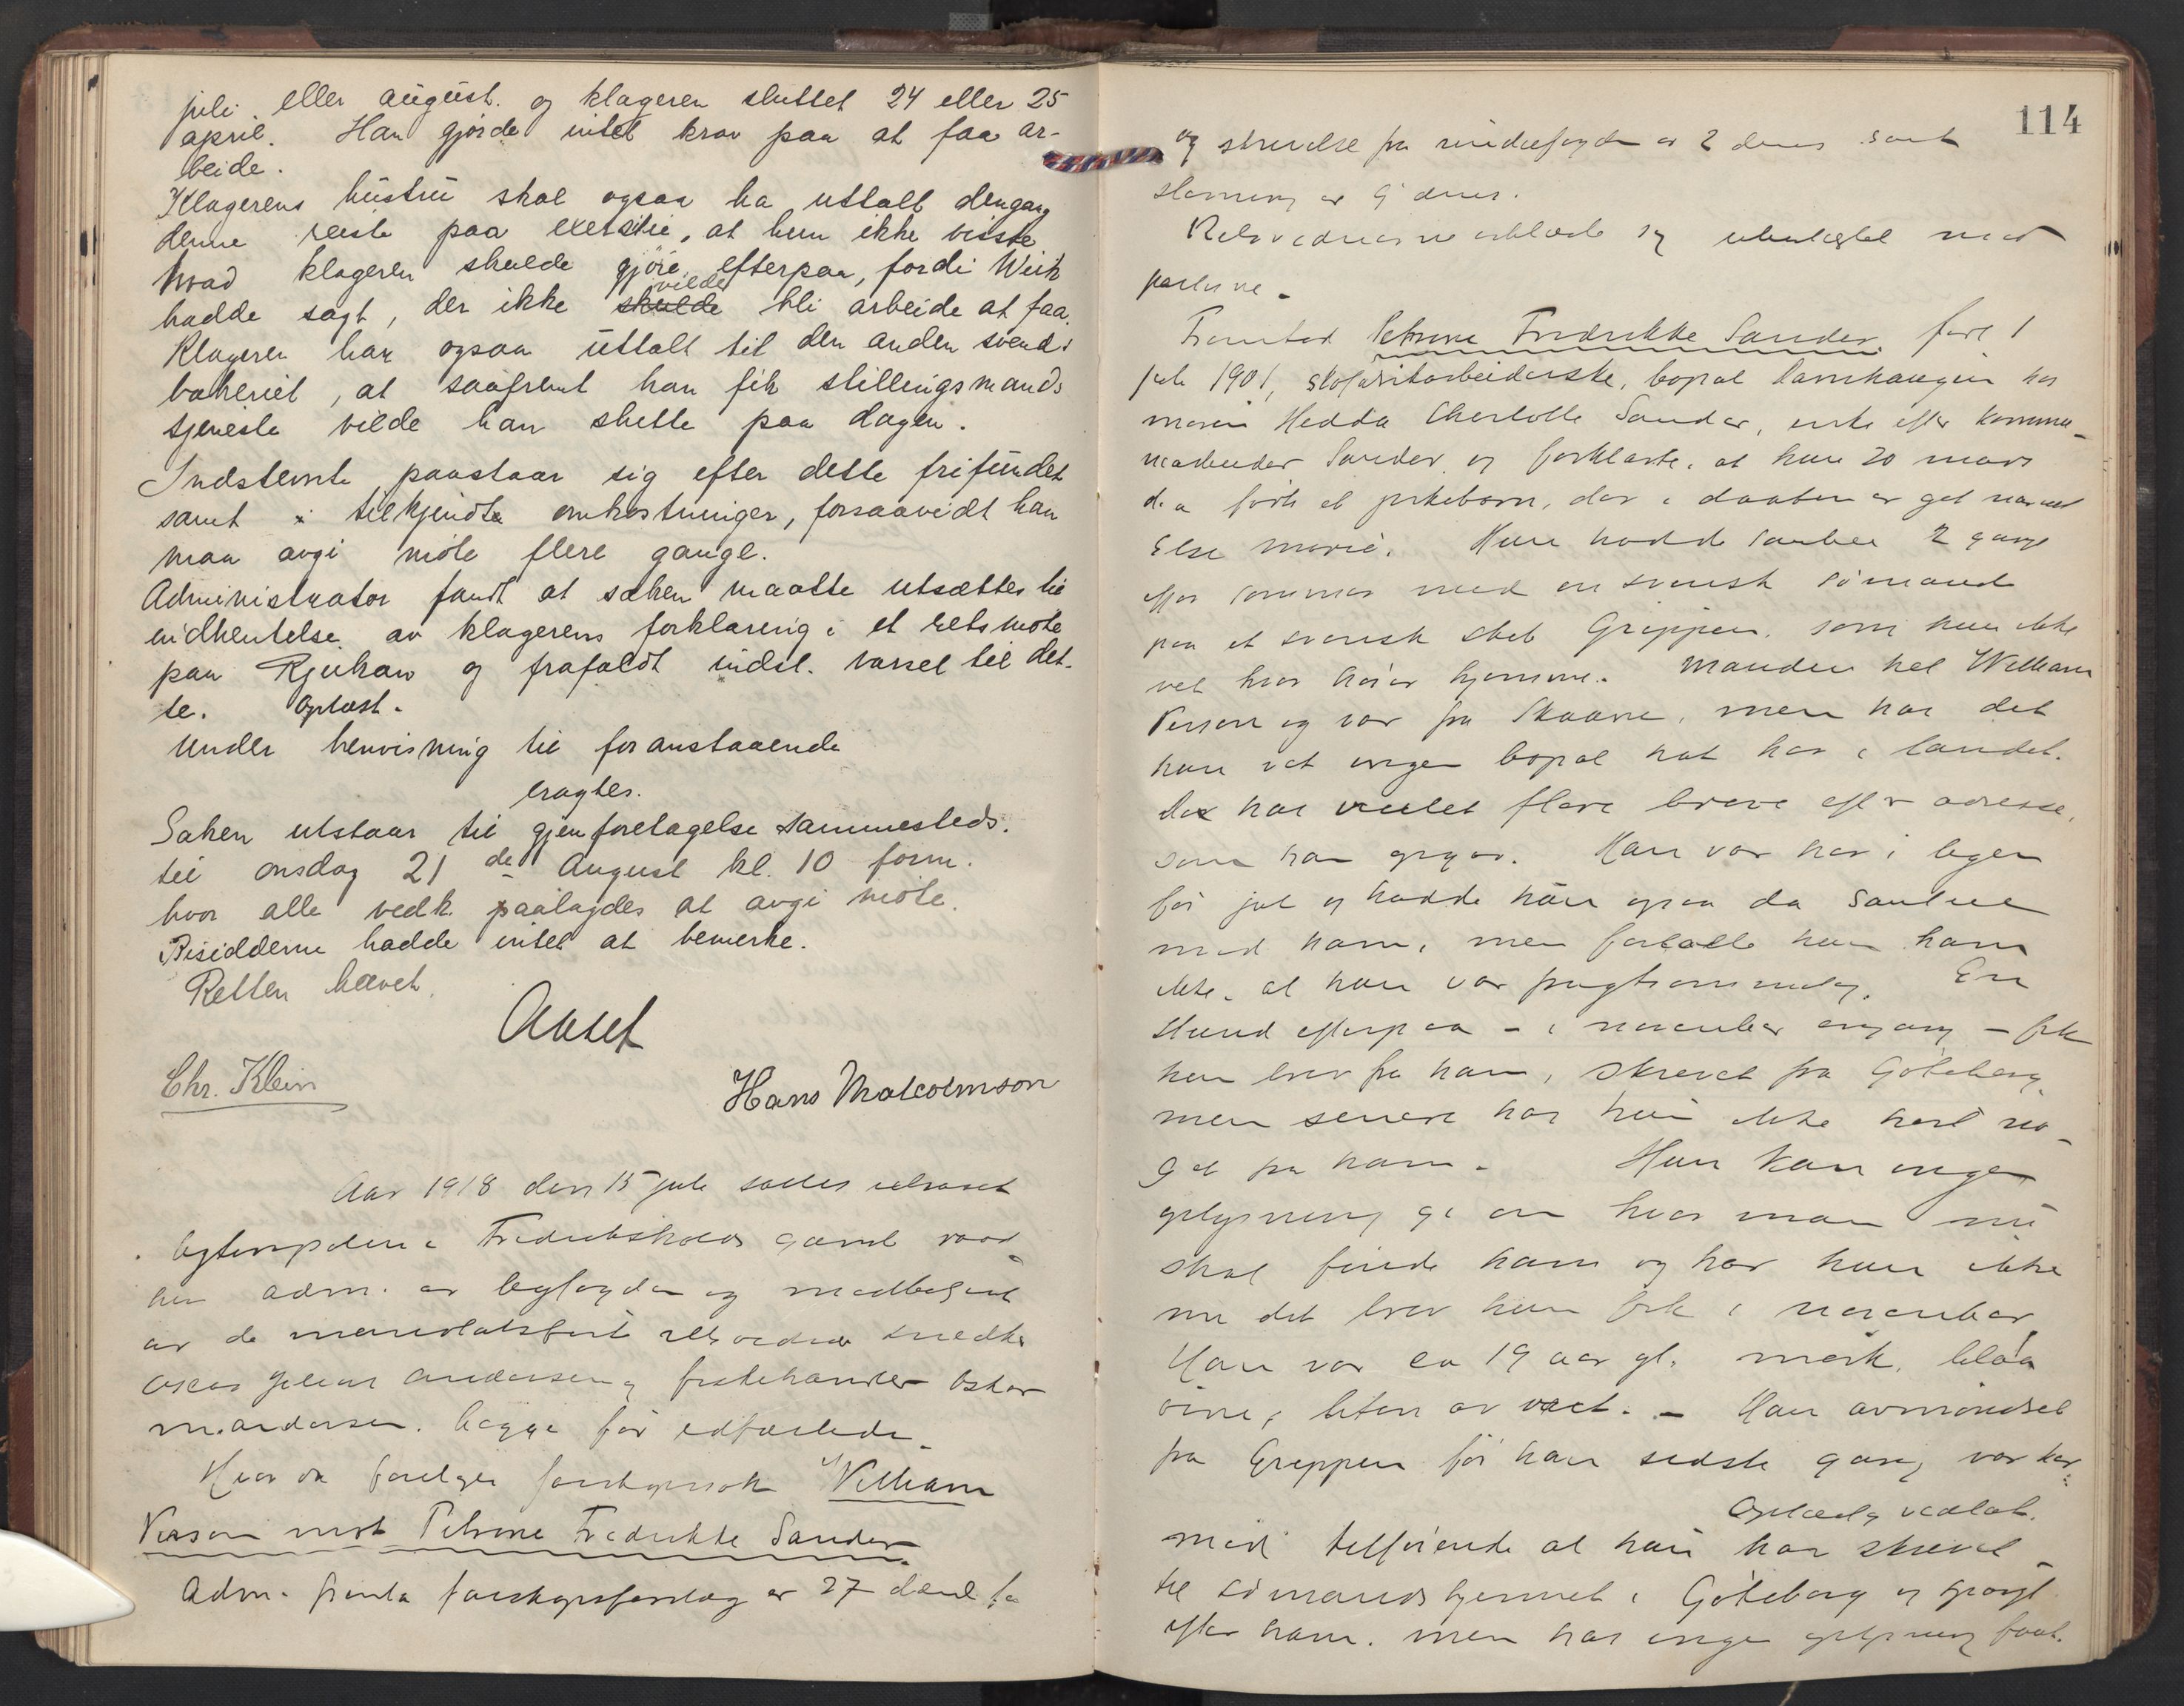 juli eller august. og klageren sluttet 24 eller 25
april. Han gjorde intet krav paa at faa ar-
beide.
Klagerens hustru skal ogsaa ha uttalt dengang
denne reiste paa exetsitie, at hun ikke visste
hvad klageren skulde gjøre efterpaa, fordi Weik
hadde sagt, der ikke skulde vilde bli arbeide at faa.
Klageren har ogsaa uttalt til den anden svend i
bakeriet, at saafremt han fik stillingsmands
tjeneste vilde han slutte paa dagen.
Indstevnte paastaar sig efter dette frifundet
samt i tilkjendte omkostninger, forsaavidt han
maa avgi møte flere gange.
Administrator fandt at saken maatte utsættes til
indhentelse av klagerens forklaring i et retsmøte
paa Rjukan og frafaldt indst. varsel til det-
te. Oplæst.
Under henvisning til foranstaaende
eragtes.
Saken utstaar til gjenforetagelse sammesteds.
til onsdag 21de August kl. 10 form.
hvor alle vedk. paalagdes at avgi møte.
Bisidderne hadde intet at bemerke.
Retten hævet.
Aaset
Chr. Klein
Hans Malcolmson
Aar 1918 den 15 juli sattes extraret
i bytingslokalet i Fredrikshalds gamle raad-
hus adm. av byfogden og medbetjent
av de retsvidner snedker
Oscar Andersen og fiskehandler Oskar
M. Andersen. begge før edfæstede.
Hvor da foretages farskapssak William
Person mot Petrine Fredrikke Sander
Adm. fremla farskapsforelæg av 27 d.
114
og skrivelse fra av 2 dennes samt
stevning av 9 dennes.
Retsvidnerne erklærte sig ubeslegtet med
parterne.
Fremstod Petrine Fredrikke Sander født 1
juli 1901, skofabrikarbeiderske, bopæl Damhaugen hos
moren Hedda Charlotte Sander, enke efter kommu-
nearbeider Sander og forklarte, at hun 20 mars
d.a. fødte et pikebarn, der i daaben er git navnet
Else Marie. Hun hadde samleie 2 gange
ifjor sommer med en svensk sjømand
paa et svensk skib Grippen, som hun ikke
vet hvor hører hjemme. Manden het William
Person og var fra Skaane, men har det
hun vet ingen bopæl hat her i landet.
Der har vexlet flere breve efter adresse,
som han opgav. Han var her i byen
før jul og hadde hun ogsaa da samleie
med ham, men fortalte hun ham
ikke, at hun var frugtsommelig. En
stund efterpaa - i november engang - fik
hun brev fra ham, skrevet fra Göteborg,
men senere har hun ikke hørt no-
get fra ham. Hun kan ingen
oplysning gi om hvor man nu
skal finde ham og har hun ikke
nu det brev hun fik i november.
Han var ca 19 aar gl. mørk, blaa
øine, liten av vext. - Han avmønstret
fra Grippen før han sidste gang var her.
Oplæst, vedtat.
med tilføiende at hun har skrevet
til sjømandshjemmet i Göteborg og spurgt
efter ham. men har ingen oplysning faat.